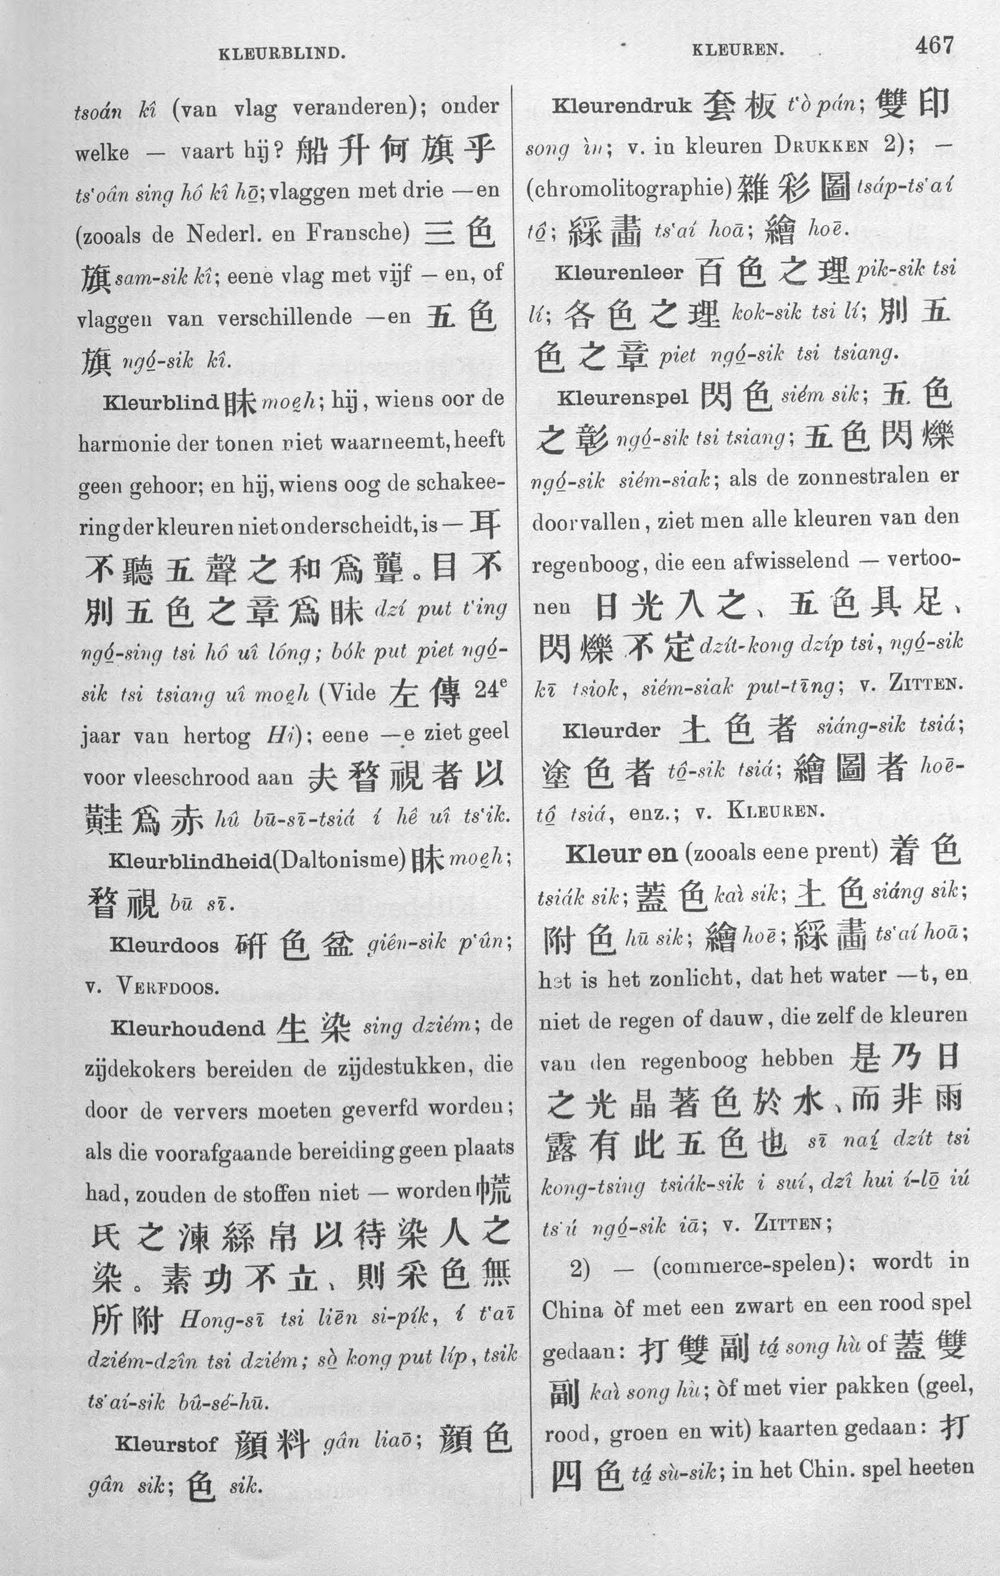 KLEURBLIND.
KLEUREN.
467
tsoán kî (van vlag veranderen); onder
welke — vaart hij? 船升何旗乎
ts'oân sing hô kî hō̤; vlaggen met drie —en
(zooals de Nederl. en Fransche) 三色
旗 sam-sik kî; eene vlag met vijf —en, of
vlaggen van verschillende —en 五色
旗 ngó̤-sik kî.
Kleurblind 眛 moe̤h; hij, wiens oor de
harmonie der tonen niet waarneemt, heeft
geen gehoor; en hij, wiens oog de schakee-
ring der kleuren niet onderscheidt, is — 耳
不聽五聲之和爲聾。目不
別五色之章爲眛 dzí put t'ing
ngó̤-sing tsi hô uî lóng; bók put piet ngó̤-
sik tsi tsiang uî moe̤h (Vide 左傳 24e
jaar van hertog Hi); eene —e ziet geel
voor vleeschrood aan 夫瞀視者以
黊爲赤 hû bū-sī-tsiá í hê uî ts'ik.
Kleurblindheid (Daltonisme) 眛 moe̤h;
瞀視 bū sī.
Kleurdoos 硏色盆 giên-sik p'ûn;
v. VERFDOOS.
Kleurhoudend 生染 sing dziém; de
zijdekokers bereiden de zijdestukken, die
door de ververs moeten geverfd worden;
als die voorafgaande bereiding geen plaats
had, zouden de stoffen niet — worden 㡆
氏之湅絲帛以待染人之
染。素功不立、則采色無
所附 Hong-sī tsi liēn si-pík, í t'aī
dziém-dzîn tsi dziém; sò̤ kong put líp, tsik
ts'aí-sik bû-sé-hū.
Kleurstof 顏料 gân liaō; 顏色
gân sik; 色 sik.
Kleurendruk 套板 t'ò pán; 雙印
song ìn; v. in kleuren DRUKKEN 2); —
(chromolitographie) 雜彩圖 tsáp-ts'aí
tô̤; 綵畵 ts'aí hoā; 繪 hoē.
Kleurenleer 百色之理 pik-sik tsi
lí; 各色之理 kok-sik tsi lí; 別五
色之章 piet ngó̤-sik tsi tsiang.
Kleurenspel 閃色 siém sik; 五色
之彰 ngó̤-sik tsi tsiang; 五色閃爍
ngó̤-sik siém-siak; als de zonnestralen er
doorvallen, ziet men alle kleuren van den
regenboog, die een afwisselend — vertoo-
nen 日光入之、五色具足、
閃爍不定 dzít-kong dzíp tsi, ngó̤-sik
kī tsiok, siém-siak put-tīng; v. ZITTEN.
Kleurder 上色者 siáng-sik tsiá;
塗色者 tô̤-sik tsiá; 繪圖者 hoē-
tô̤ tsiá, enz.; v. KLEUREN.
Kleuren (zooals eene prent) 着色
tsiák sik; 蓋色 kaì sik; 上色 siáng sik;
附色 hū sik; 繪 hoē; 綵畵 ts'aí hoā;
het is het zonlicht, dat het water —t, en
niet de regen of dauw, die zelf de kleuren
van den regenboog hebben 是乃日
之光晶著色於水、而非雨
露有此五色也 sī naí̤ dzít tsi
kong-tsing tsiák-sik i suí, dzî hui í-lō̤ iú
ts'ú ngó̤-sik iā; v. ZITTEN;
2) — (commerce-spelen); wordt in
China òf met een zwart en een rood spel
gedaan: 打雙副 tá̤ song hù of 蓋雙
副 kaì song hù; òf met vier pakken (geel,
rood, groen en wit) kaarten gedaan: 打
四色 tá̤ sù-sik; in het Chin. spel heeten